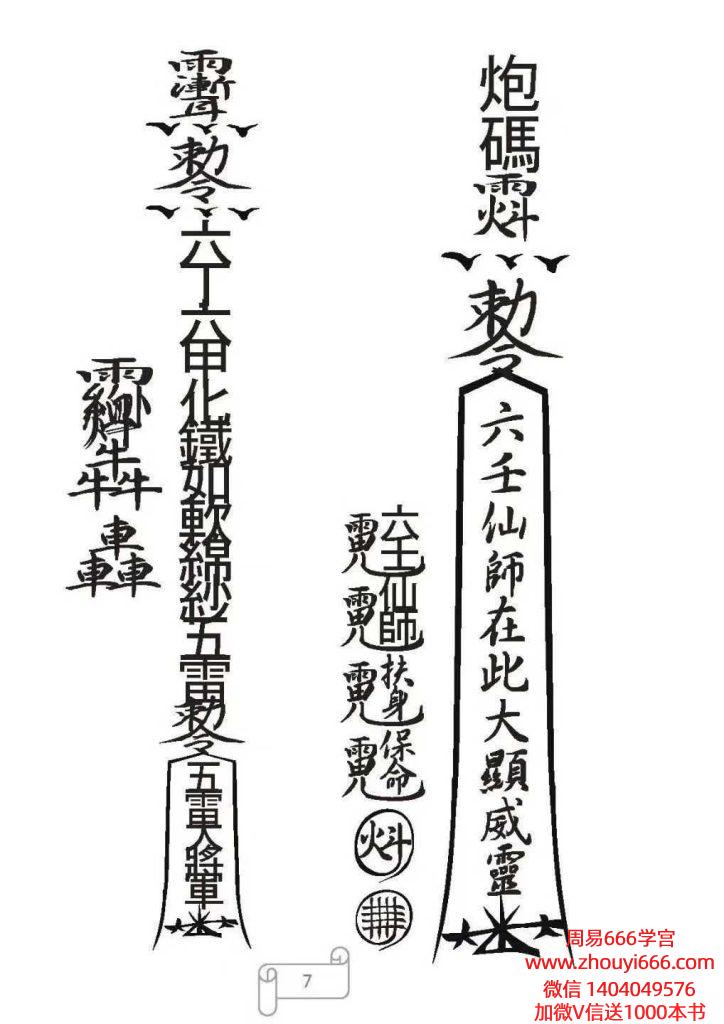 炮碼
勅令
六壬仙師在此大顯威靈
六壬仙師
扶身
保命
勅令
六丁六甲化鐵如軟綿紗五雷
勅令
五雷大將軍
犇
轟
7
周易666学宫
www.zhouyi666.com
微信 1404049576
加微V信送1000本书